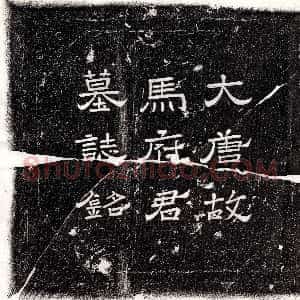 大唐故
馬府君
墓誌銘
Shufazidao.COM